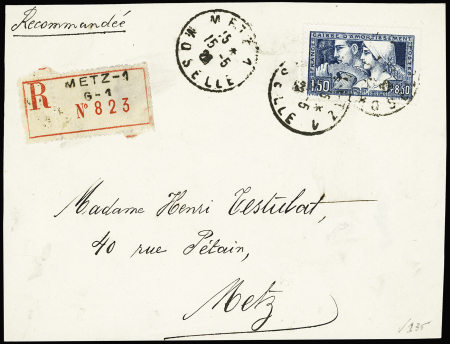 Recommandée
METZ 1
15 -5
MOSELLE
R
METZ-1
G-1
N° 823
CAISSE D'AMORTISSEMENT
1,50
+8,50
Madame Henri Testulat,
40 rue Pétain,
Metz